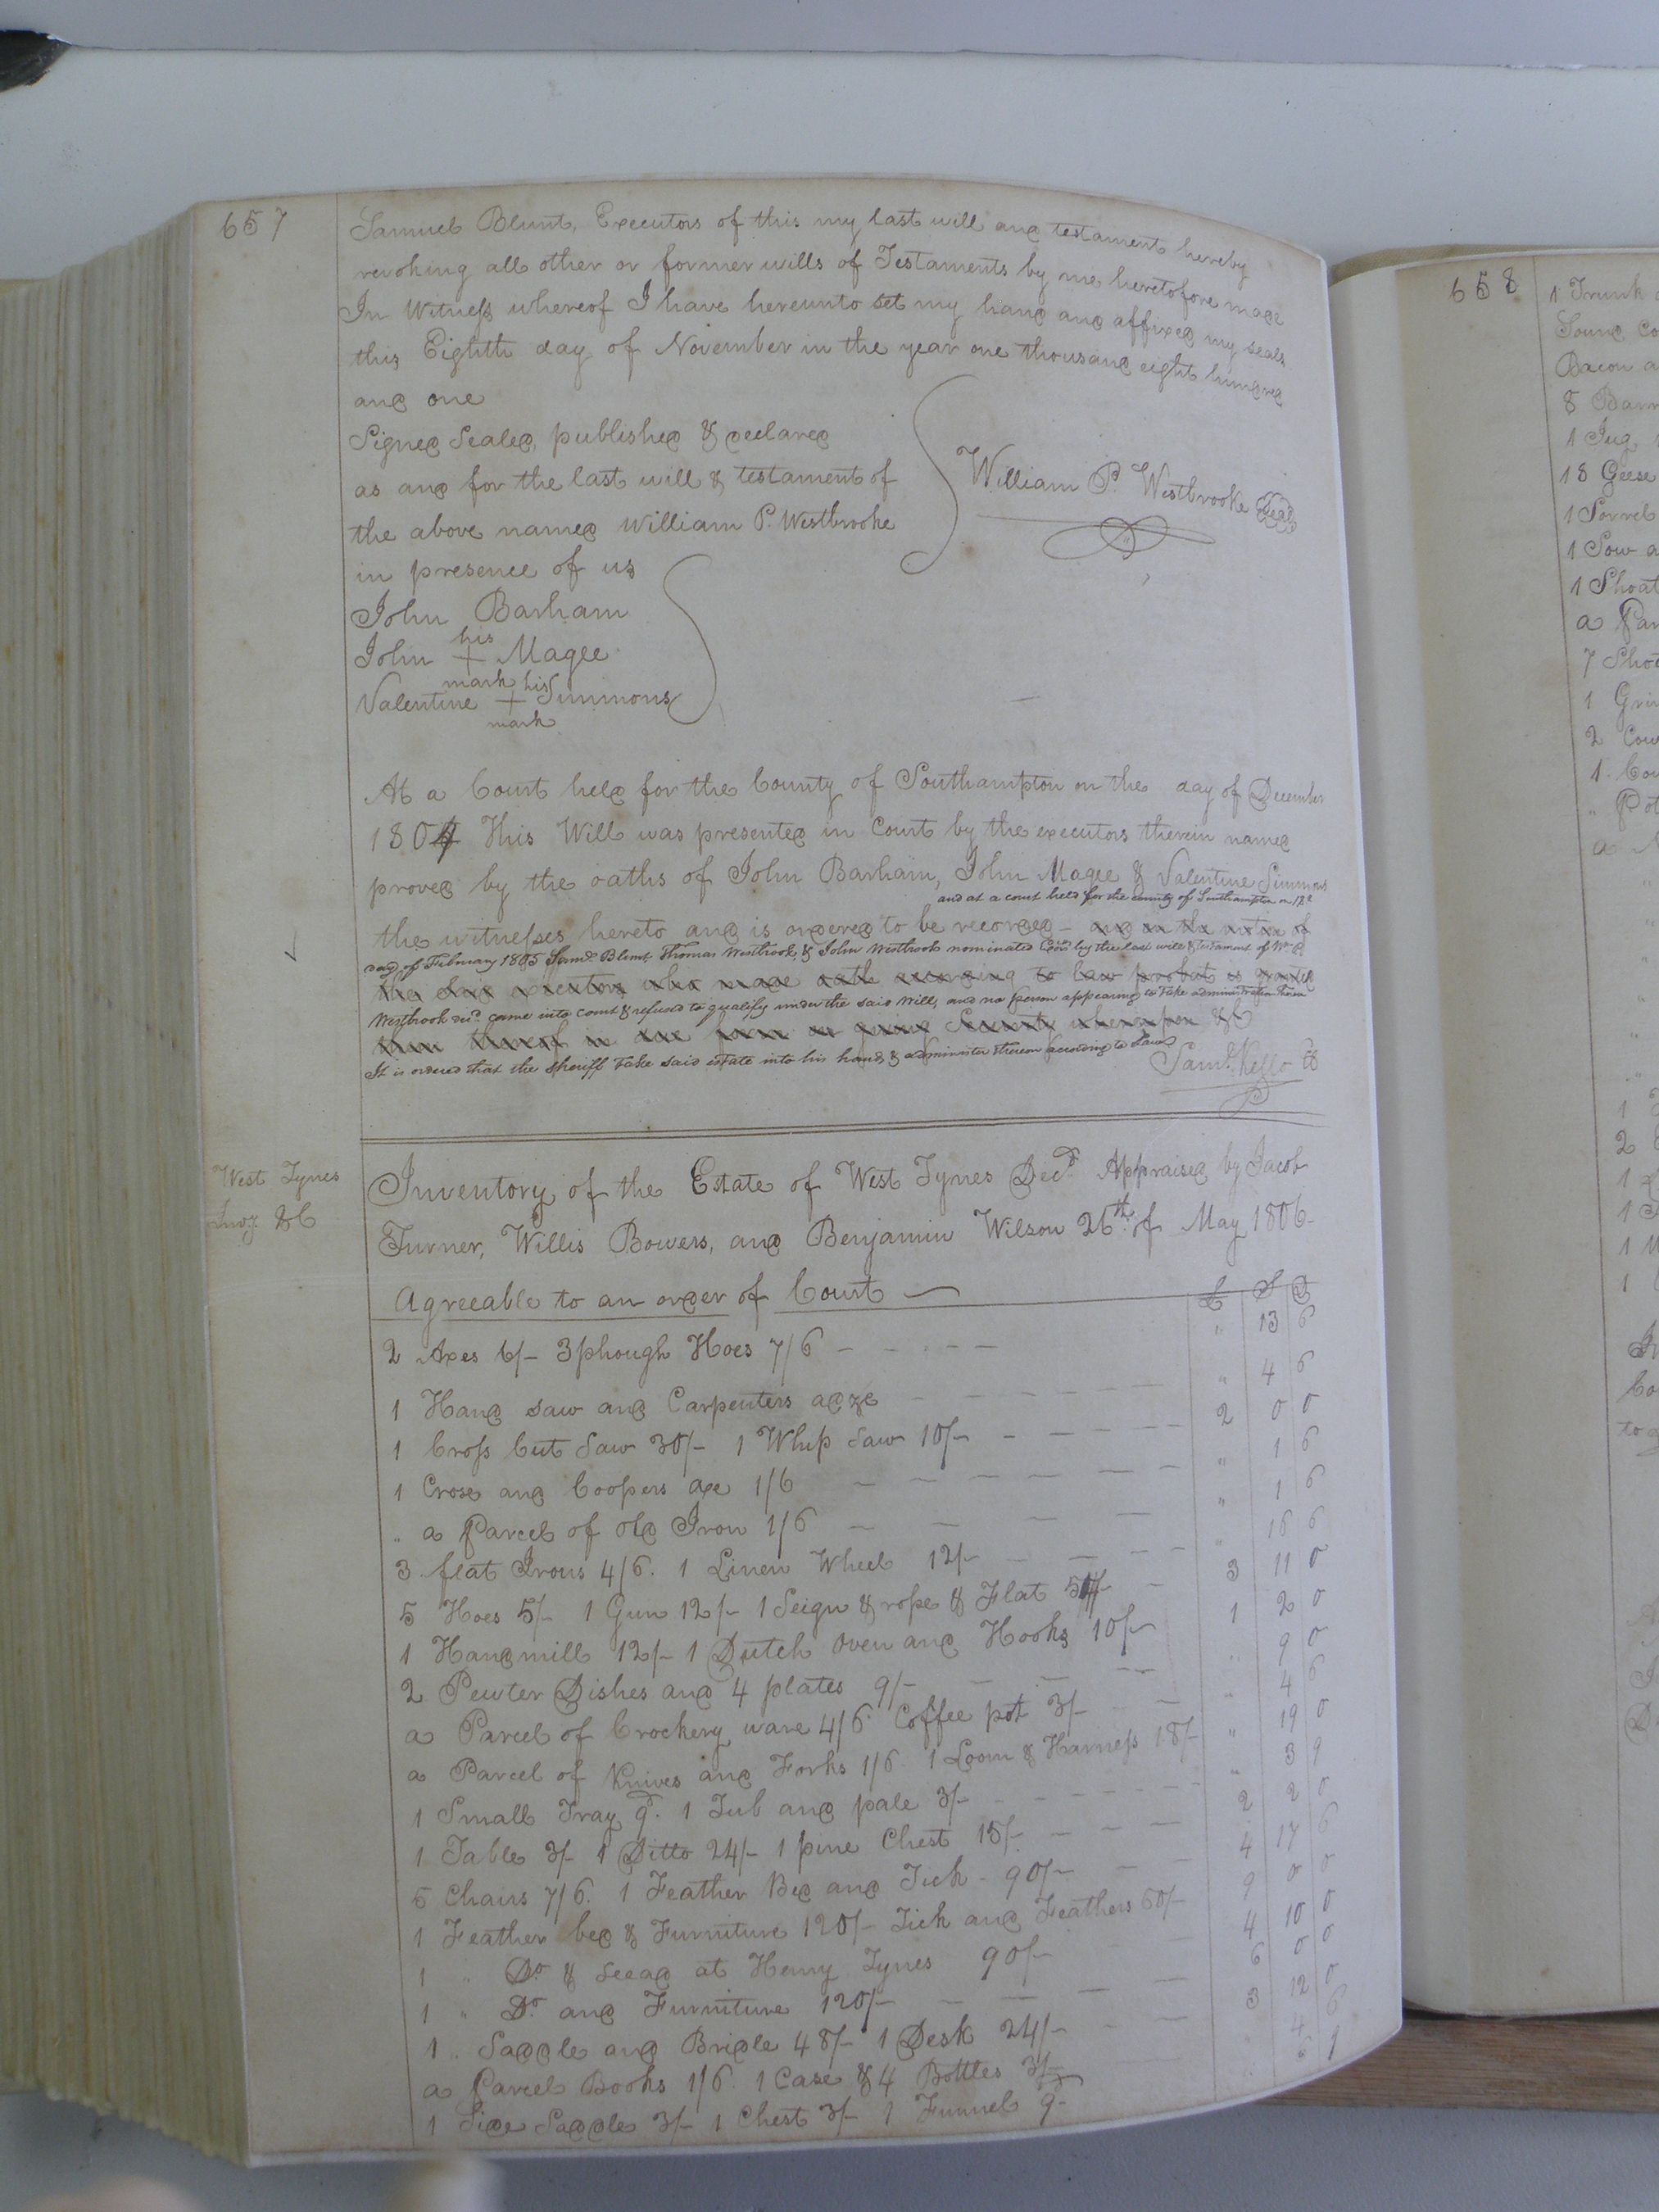 657
Samuel Blunt, Executors of this my last will and testament hereby
revoking all other or former wills of Testaments by me heretofore made
In Witness whereof I have hereunto set my hand and affixed my seals
this Eighth day of November in the year one thousand eight hundred
and one
Signed Sealed, published & declared
as and for the last will & testament of
the above named William P. Westbrooke
in presence of us
William P. Westbrooke Seal
John Barham
John his + mark Magee
Valentine his + mark Simmons
At a Court held for the County of Southampton on the day of December
1804 This Will was presented in Court by the executors therein named
proved by the oaths of John Barham, John Magee & Valentine Simmons
and at a court held for the county of Southampton on 18th
the witnesses hereto and is ordered to be recorded - and on the motion of
day of February 1805 Saml. Blunt, Thomas Westbrook, & John Westbrook nominated Exors by the last will & testament of Wm P.
the said executors who made oath according to law probat is granted
Westbrook decd. came into court & refused to qualify under the said will, and no person appearing to take administration
them thereof in due form on giving Security whereupon &c
It is ordered that the sheriff take said estate into his hands & administer thereon according to Law
Saml. Kello CC
West Tynes
Invy &C
Inventory of the Estate of West Tynes Decd. Appraised by Jacob
Turner, Willis Bowers, and Benjamin Wilson 26th of May 1806-
Agreeable to an order of Court £ S D
2 Axes 6/- 3 plough Hoes 7/6 " 13 6
1 Hand saw and Carpenters adze " 4 6
1 Cross Cut Saw 30/- 1 Whip Saw 10/- 2 0 0
1 Crose and Coopers axe 1/6 " 1 6
" a Parcel of old Iron 1/6 " 1 6
3 flat Irons 4/6. 1 Linen Wheel 12/- " 16 6
5 Hoes 5/- 1 Gun 12/- 1 Seign & rope & Flat 54/- 3 11 0
1 Handmill 12/- 1 Dutch Oven and Hooks 10/- 1 2 0
2 Pewter Dishes and 4 plates 9/- " 9 0
a Parcel of Crockery ware 4/6 Coffee pot 3/- " 4 6
a Parcel of Knives and Forks 1/6 1 Loom & Harness 18/- " 19 0
1 Small Tray 9d. 1 Tub and pale 3/- " 3 9
1 Table 3/- 1 Ditto 24/- 1 pine Chest 15/- 2 2 0
5 Chairs 7/6. 1 Feather Bed and Tick - 90/- 4 17 6
1 Feather bed & Furniture 120/- Tick and Feathers 60/- 9 0 0
1 " Do & Stead at Henry Tynes 90/- 4 10 0
1 " Do. and Furniture 120/- 6 0 0
1 " Saddle and Bridle 48/- 1 Desk 24/- 3 12 0
a Parcel Books 1/6. 1 Case & 4 Bottles 3/- " 4 6
1 Side Saddle 3/- 1 Chest 3/- 1 Funnel 9- 6
658
1 Trunk
Sound
Bacon
8
1 Jug
18 Geese
1 Sorrel
1 Sow
1 Shoat
a
7
1
2
1
"
a